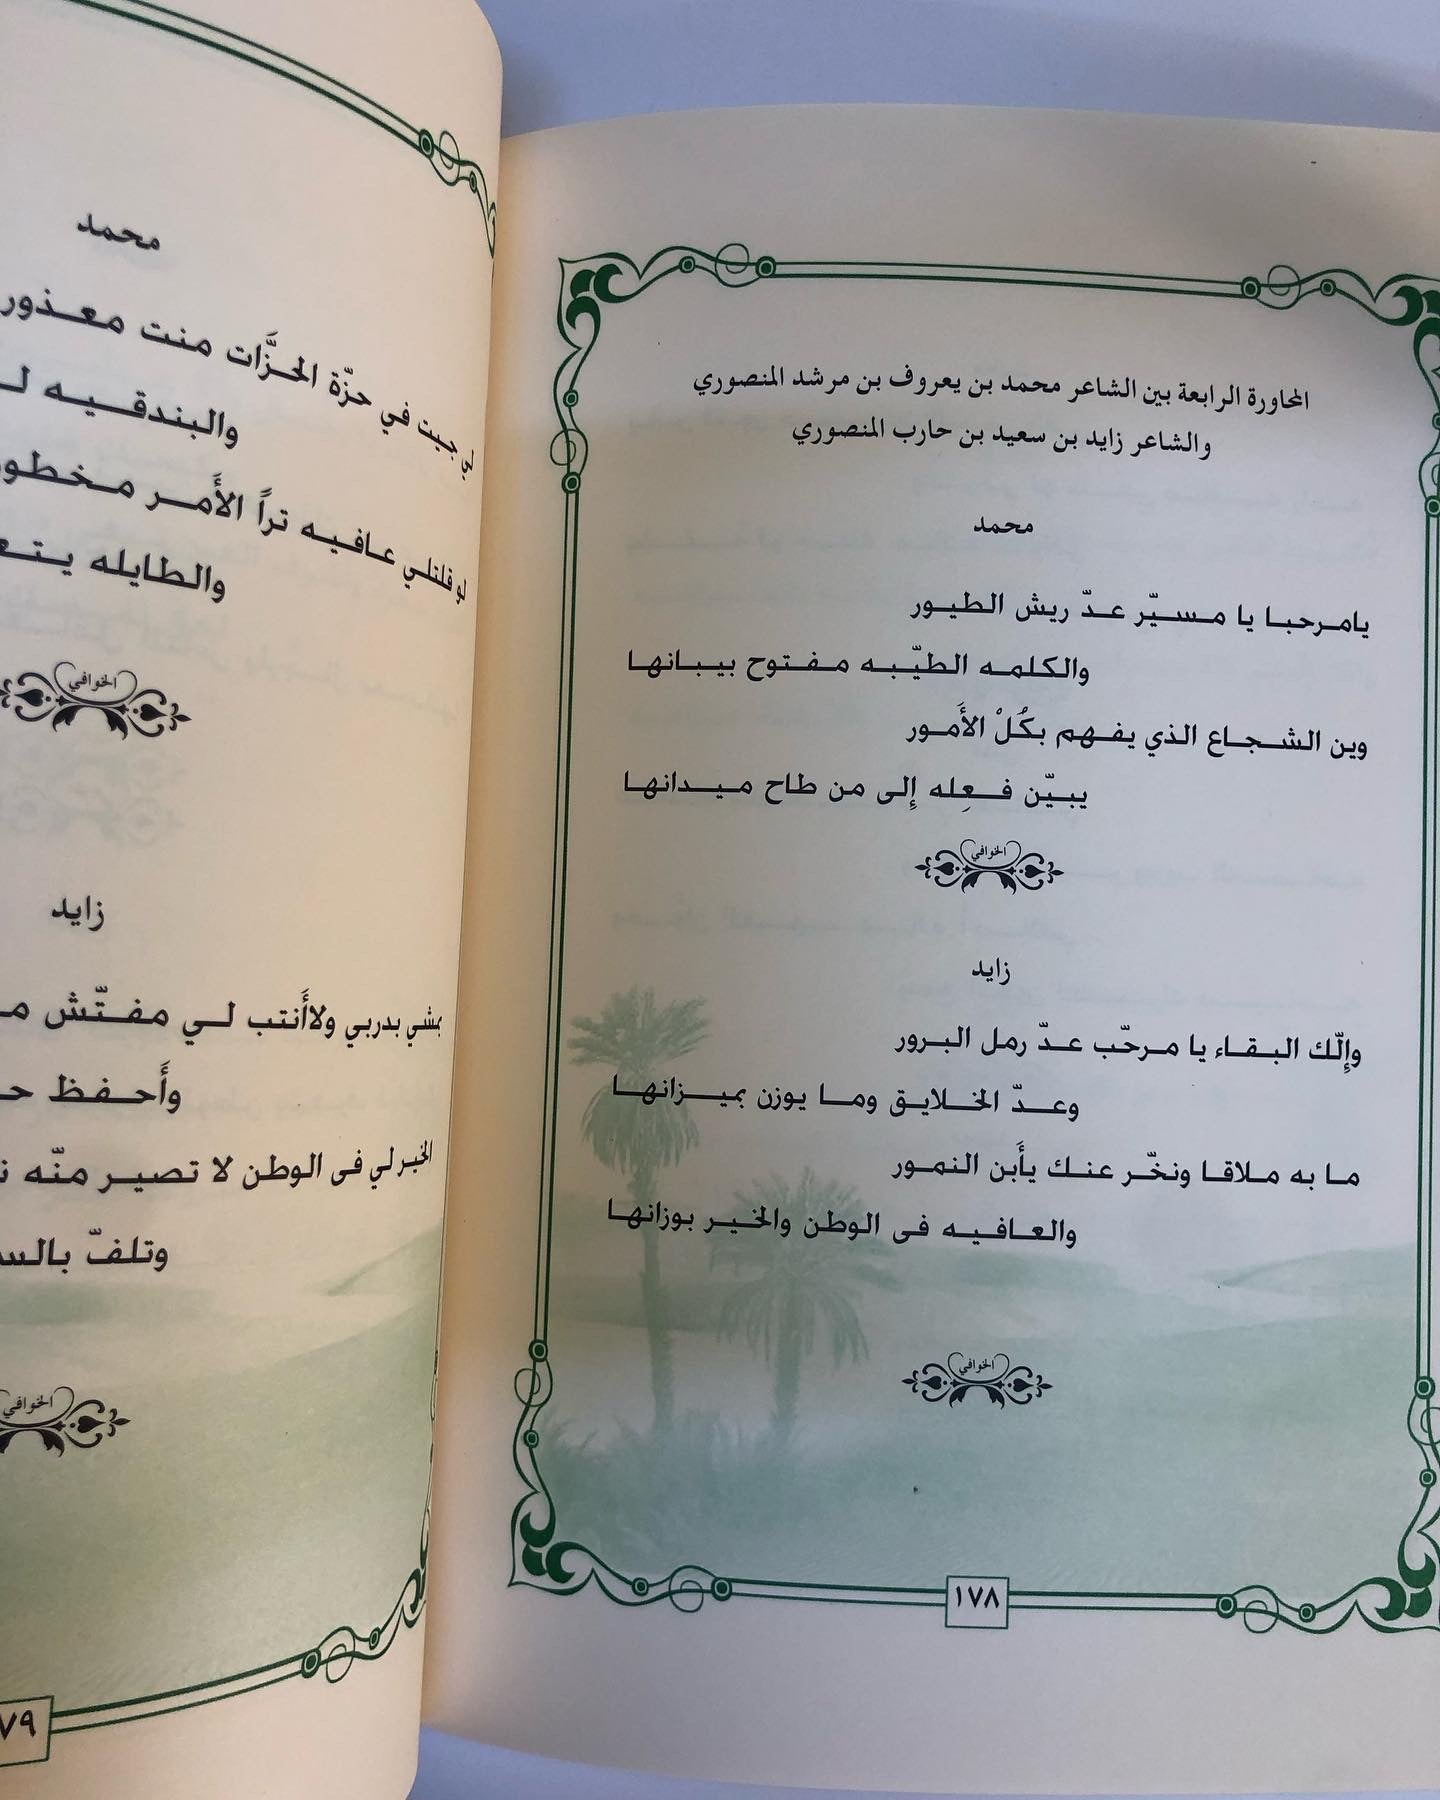 المحاورة الرابعة بين الشاعر محمد بن يعروف بن مرشد المنصوري
والشاعر زايد بن سعيد بن حارب المنصوري
محمد
يامرحبا يا مسيّر عدّ ريش الطيور
والكلمه الطيّبه مفتوح بيبانها
وين الشجاع الذي يفهم بكُلْ الأَمور
يبيّن فعِله إلى من طاح ميدانها
الخوافي
زايد
وإلّك البقاء يا مرحّب عدّ رمل البرور
وعدّ الخلايق وما يوزن بميزانها
ما به ملاقا ونخّر عنك يأَبن النمور
والعافيه فى الوطن والخير بوزانها
الخوافي
١٧٨
محمد
لي جيت في حزّة الحزَّات منت معذور
والبندقيه
لو قلتلي عافيه تراً الأَمر مخطور
والطايله
الخوافي
زايد
بمشي بدربي ولاأَنتب لي مفتّش
وأَحفظ
الخبر لي فى الوطن لا تصير منّه
وتلفّ
الخوافي
٧٩